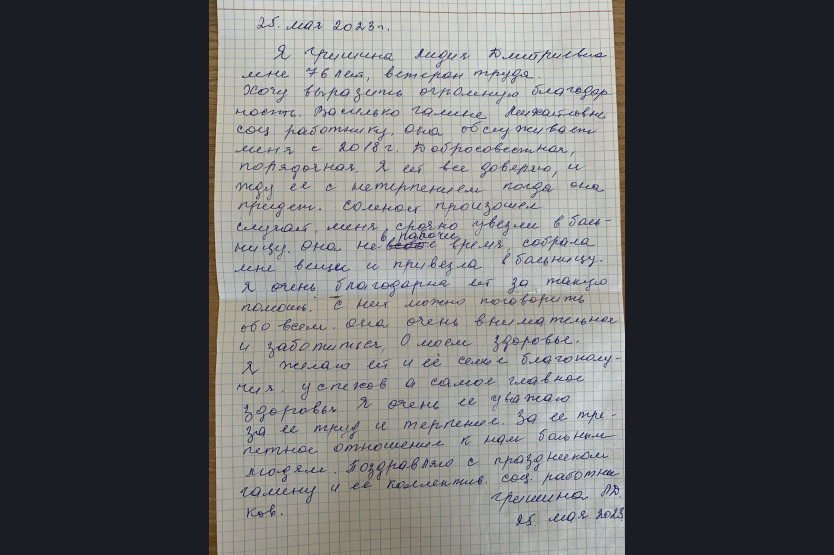 25. мая 2023г.
Я Гришина Лидия Дмитриевна
мне 76 лет, ветеран труда.
Хочу выразить огромную благодар
ность. Василько Галине
соц работнику. она обслуживает
меня с 2018 г. Добросовестная,
порядочная. Я ей все доверяю, и
жду ее с нетерпением когда она
придет. со мной произошел
случай, меня срочно увезли в боль-
ницу. она не в рабочее время, собрала
мне вещи и привезла в больницу.
Я очень благодарна ей за такую
помощь. с ней можно поговорить
обо всем. она очень внимательная
и заботиться, о моем здоровье.
Я желаю ей и её семье благополу-
чия. успехов а самое главное
здоровья Я очень ее уважаю
за ее труд и терпение. За ее тре-
петное отношение к нам больным
людям. Поздравляю с праздником
галину и её коллектив. соц. работни
ков.
гришина ЛД.
25. мая 2023